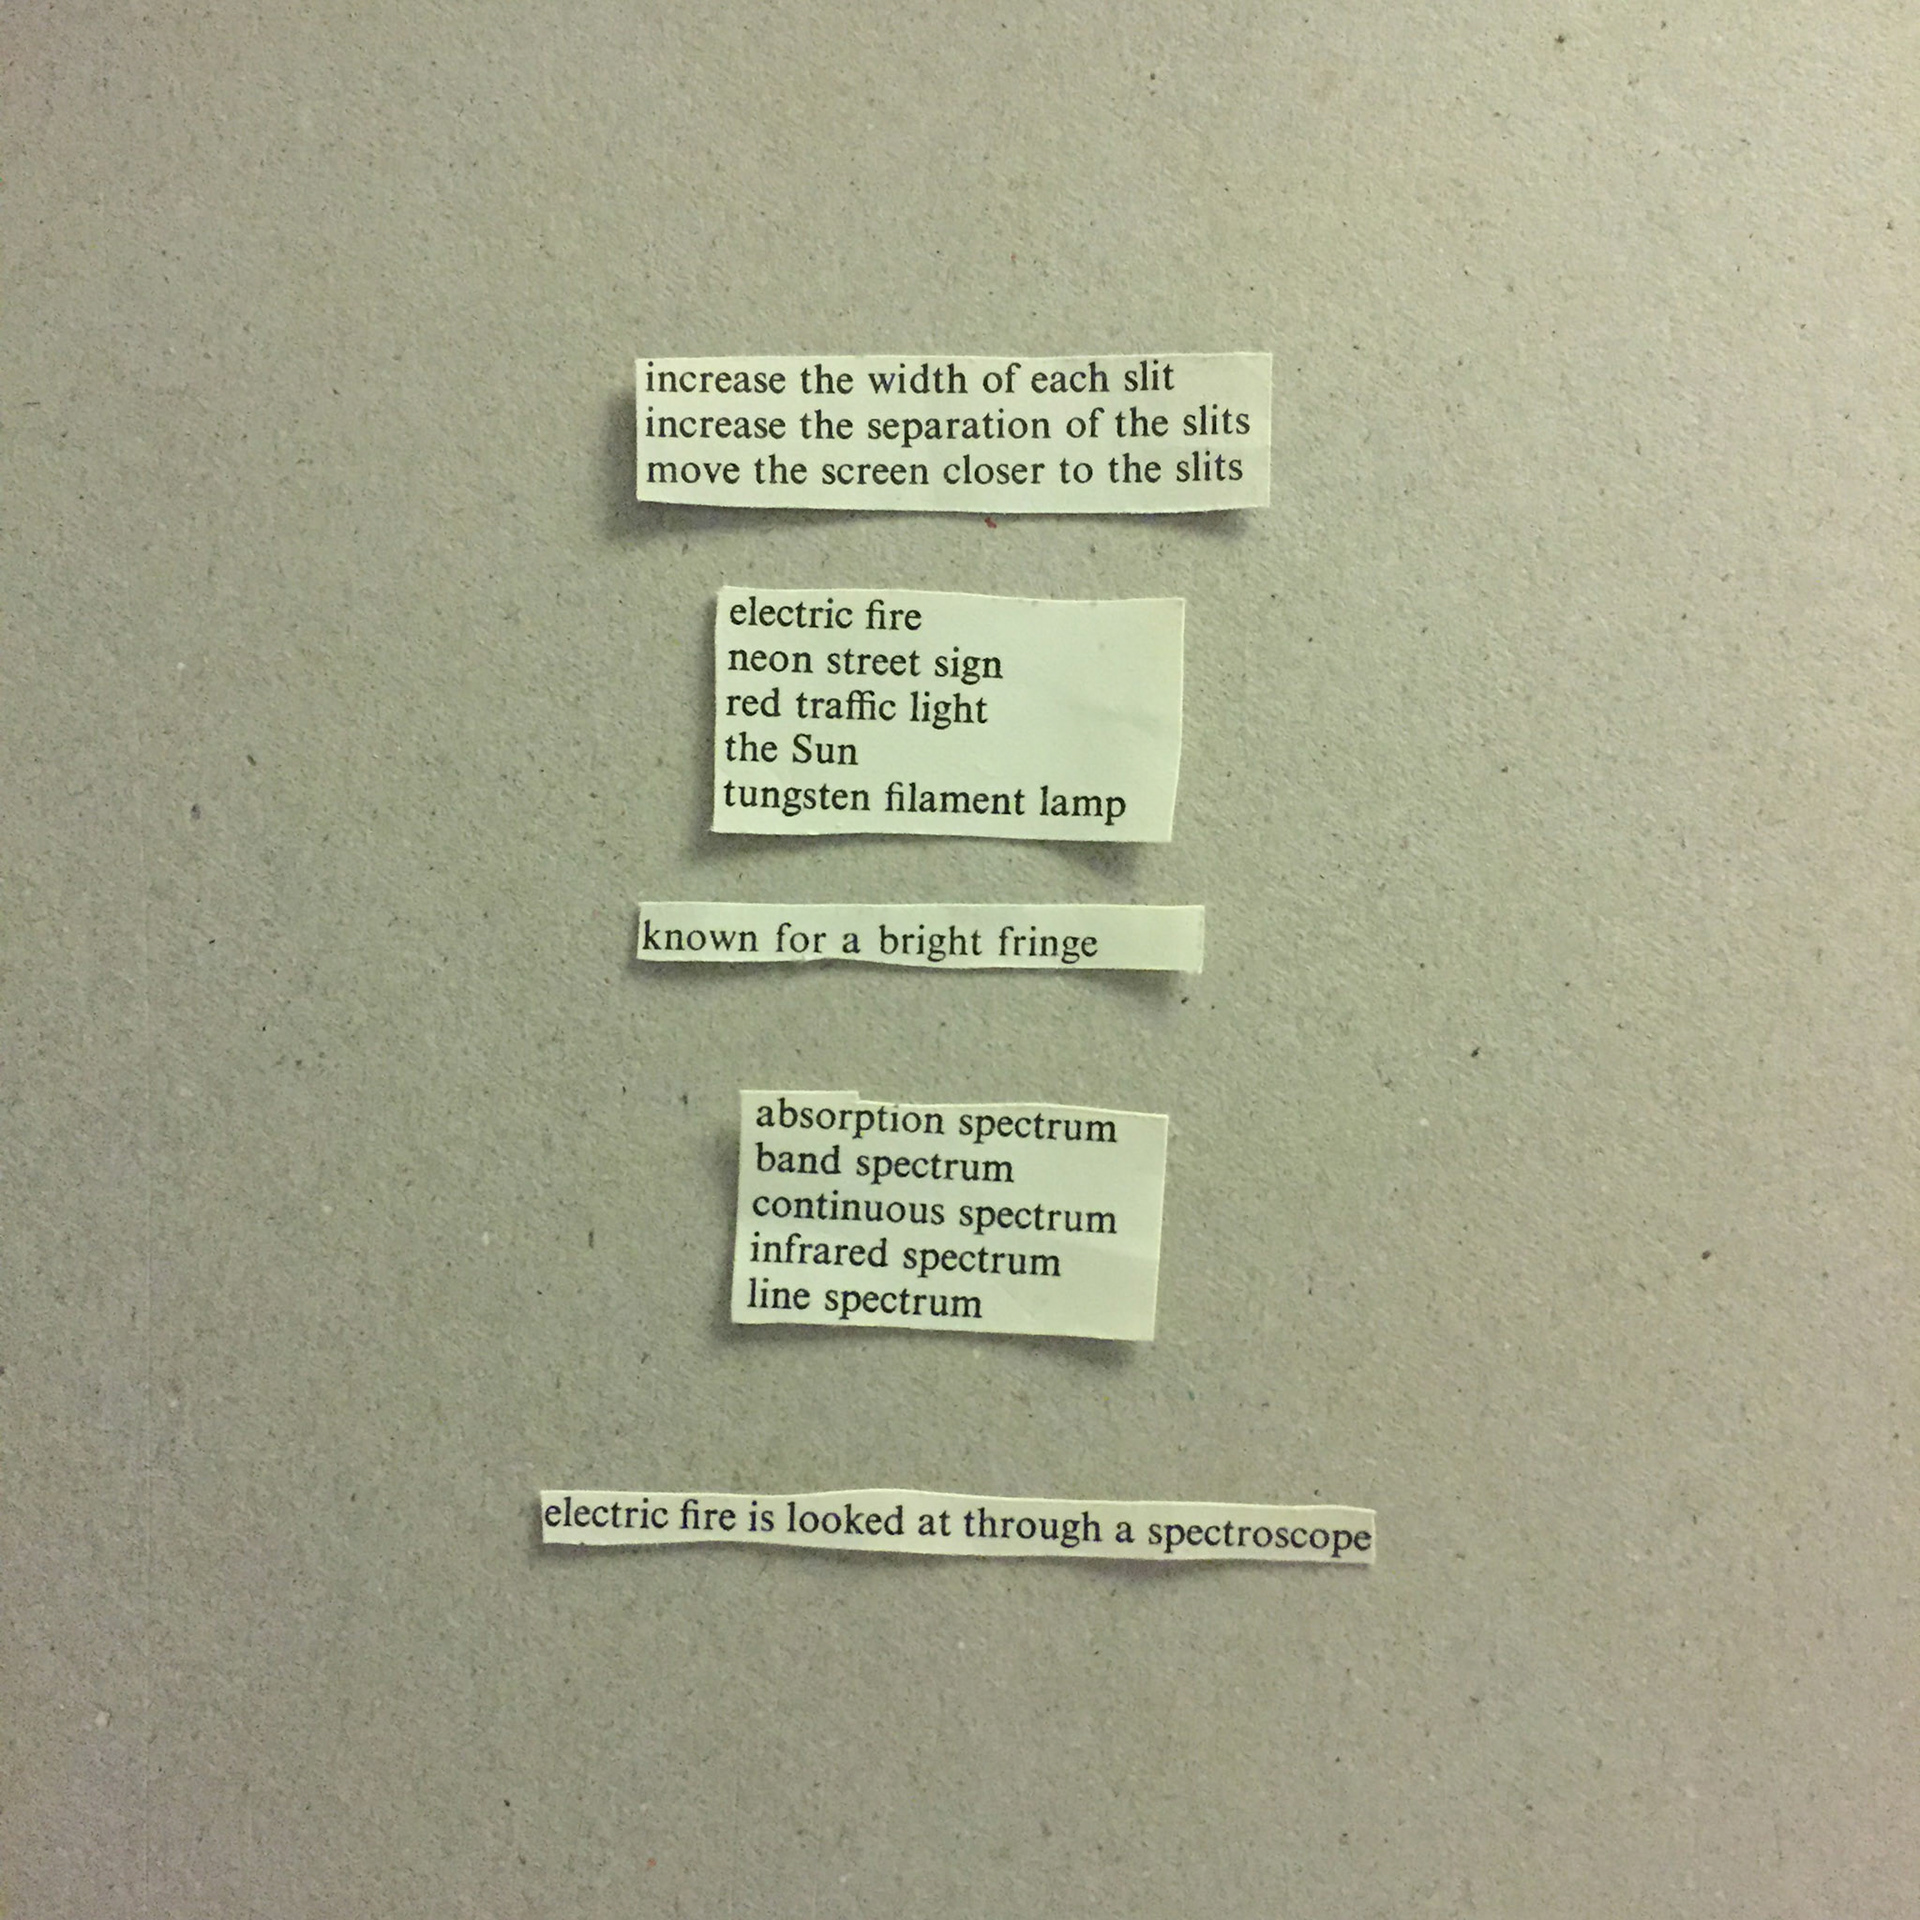 increase the width of each slit
increase the separation of the slits
move the screen closer to the slits
electric fire
neon street sign
red traffic light
the Sun
tungsten filament lamp
known for a bright fringe
absorption spectrum
band spectrum
continuous spectrum
infrared spectrum
line spectrum
electric fire is looked at through a spectroscope